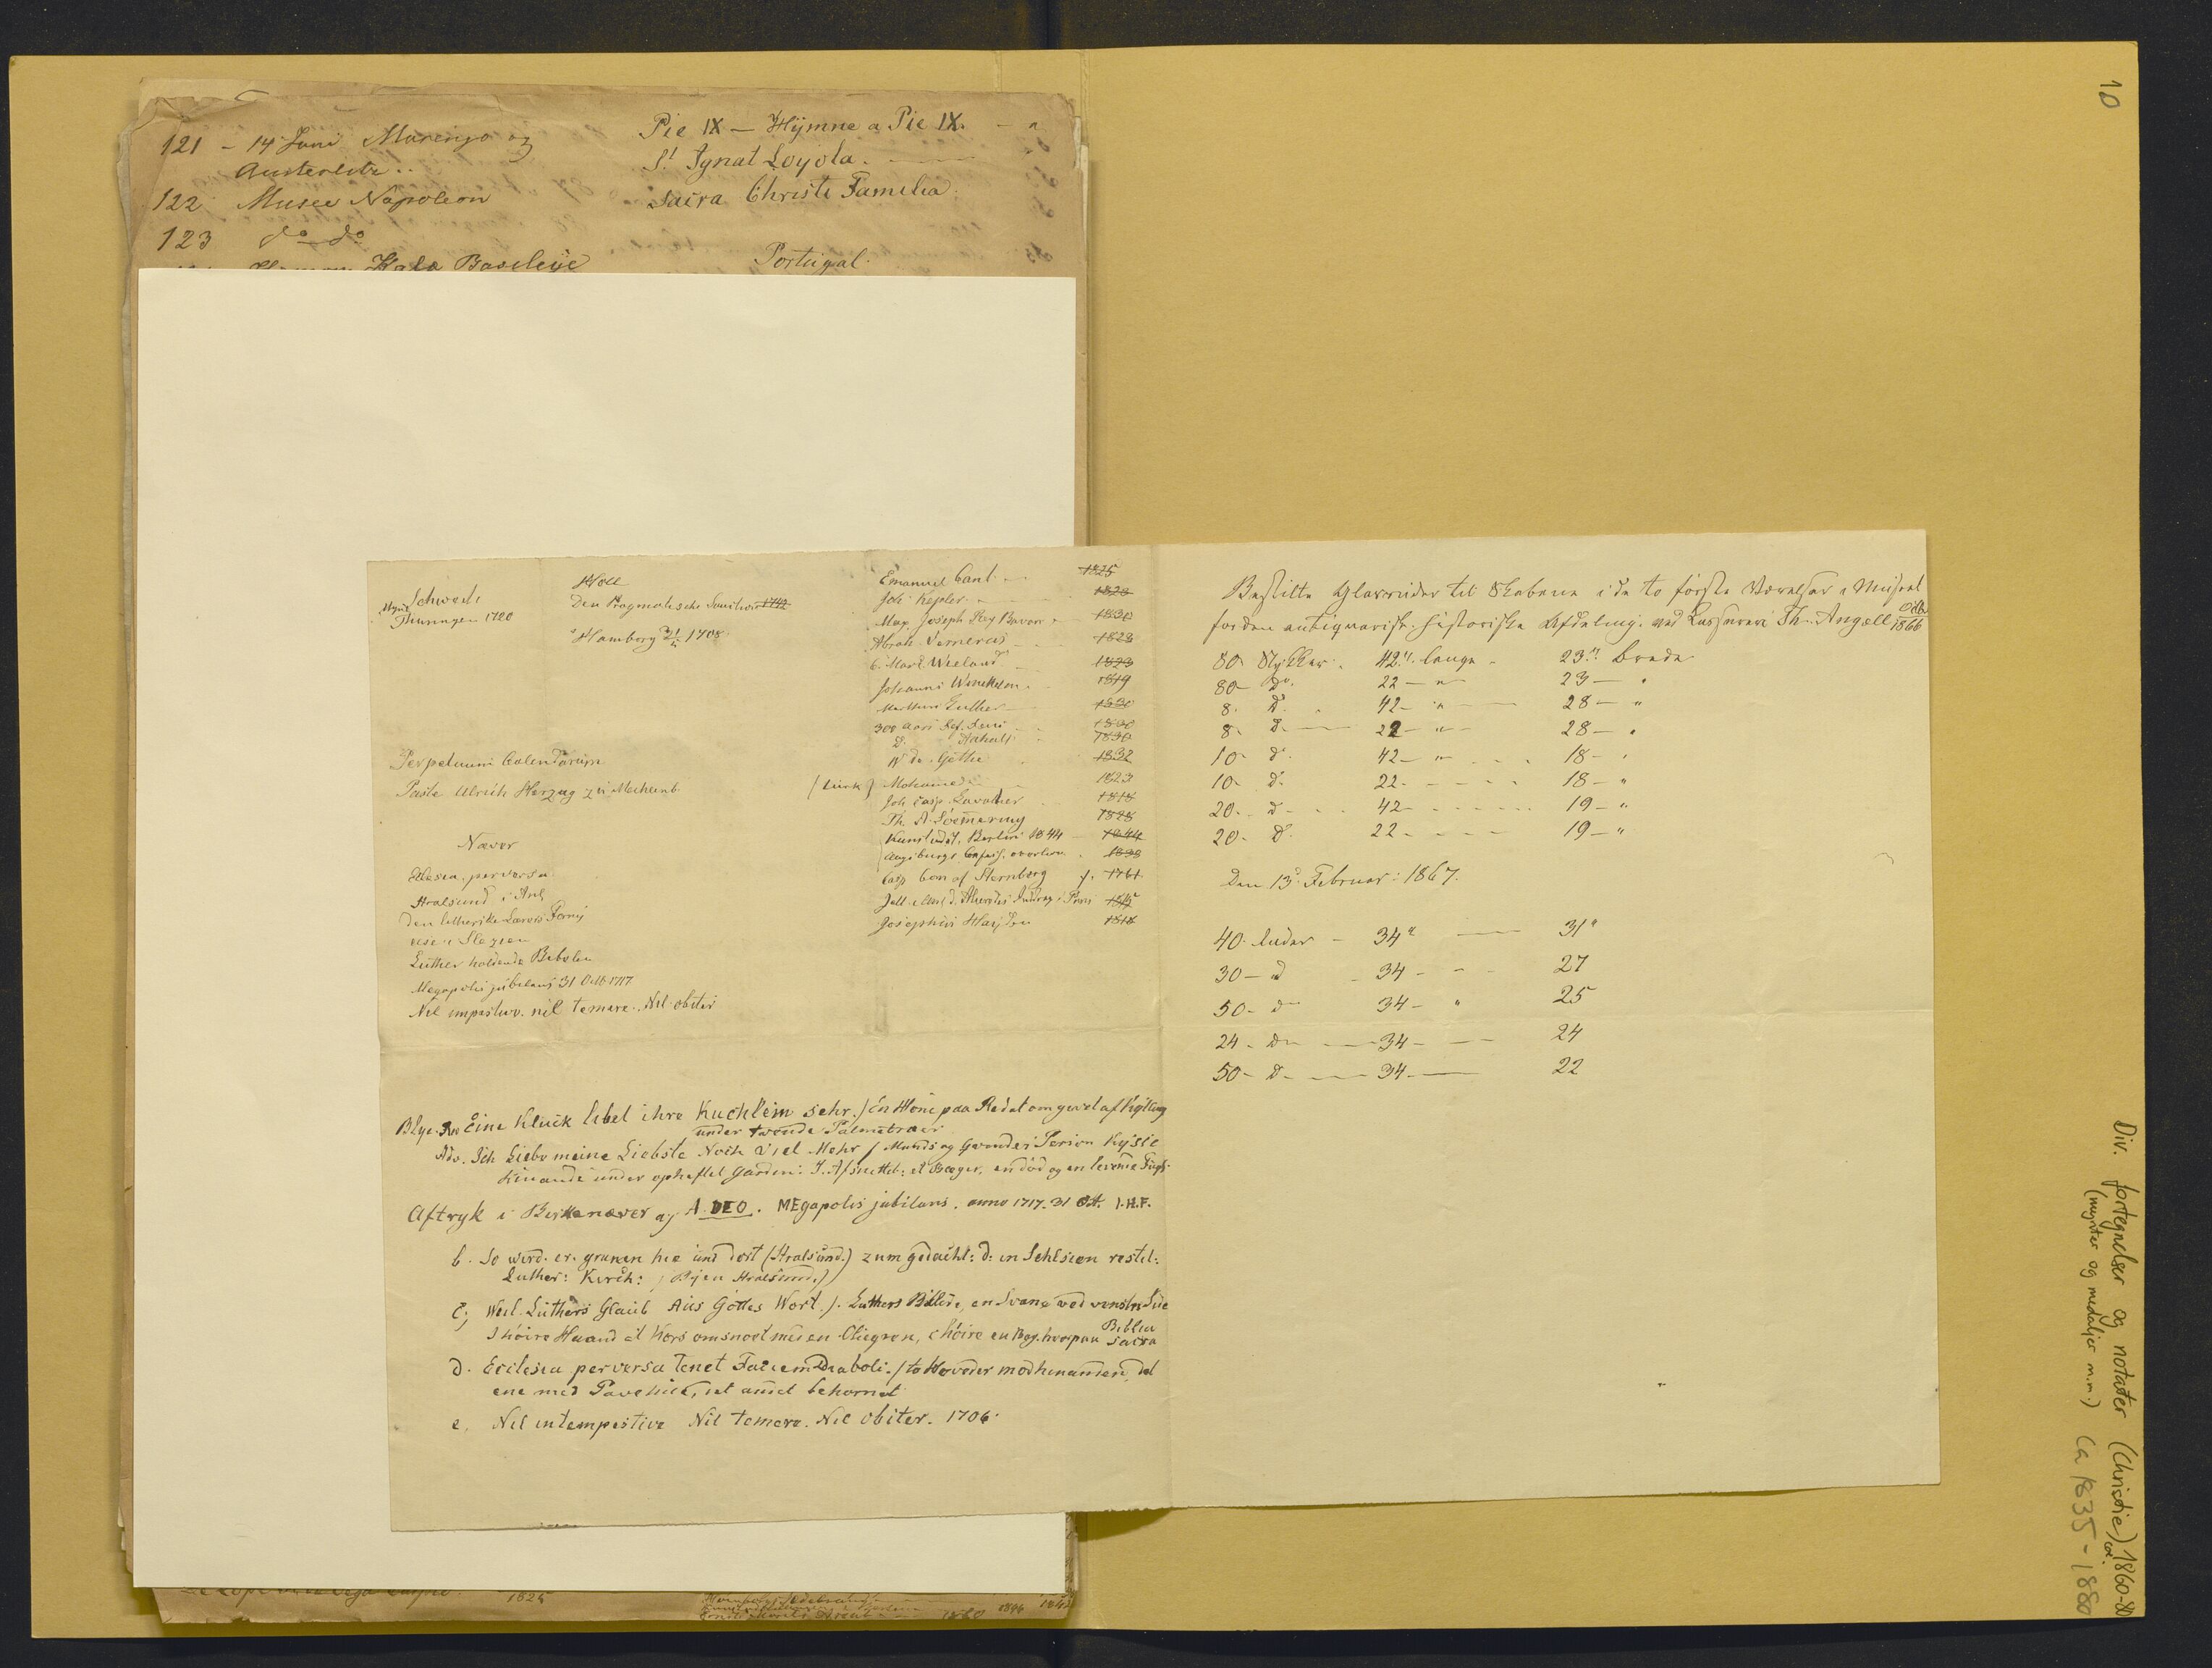 10
121 - 14 Juni Marengo og
Austerlitz..
122 Musee Napoleon
123 do do
Basileye
Pie IX — Hymne a Pie IX. -
St Ignat Loyola.
Sacra Christi Familia.
Portugal.
Schwed:
Thuringen 1720
Den Pragmatische Sanction 1742
Hamborg 1708
Perpetuum Calendarium
Paste Ulrich Herzog zu Mecklenb.
Næver
Eclesia perversa
Stralsund i Anl
Den lutherske Læres Forny
else i Slezien
Luther holdende Bibelen
Megapolis jubilans 31 Octb 1717
Nil impestivo. nil temere. Nil obiter
Emanuel Cant. — 1825
Joh Kepler
Max. Joseph Rex Bavar
Abrah. Vernerus 1823
C. Mart Wieland 1823
Johannes Winckelm. 1819
Martinus Luther
300 Aars Ref. 
D.
W de Göthe 1832
(tiirk) Mohamed 1823
Joh Casp. Lavather 1818
Th. A. Soemering 1828
Kunstudst. Berlin 1844 1844
Augsburgs. Confess. 
Casp Con af Sternberg f. 1761
Josephus Haydn 1818
Bestilte Glasruder til Skabene i de to förste Værelser i Museet
for den antiquarisk-historiske Afdeling. ved Th. Angell 1866
80 Stykker. 42" lange - 23" brede
80 - do. 22 — " — 23 — "
8. do. 42 — " — 28 — "
8. do. — 22 — " — 28 — "
10 - do. 42 — " - - 18 — "
10 - do. 22 - - - - 18 — "
20 - do - - 42 - - - - 19 — "
20 - do. 22 - - - - 19 — "
Den 13de Februar: 1867.
40. Ruder - 34" — 31"
30 — do - 34 - - - 27
50 - do 34 — " 25
24 - do — 34 - — 24
50 - do — 34 — 22
Blye. Rev Eine Kluck libet ihre Kuchlein sehr. / En Höne paa Redet omgivet af Kylling
under tvende Palmetræer
Adv. Ich Liebe meine Liebste Noch Viel Mehr / Mands og Qvindes Person Kysse
hinanden under ophæftet Garden: I Afsnittet: et Bæger, en död og en levende Fugl.
Aftryk i Birkenæver af A. DEO. MEgapolis jubilans. anno 1717. 31 Oct. I.H.F.
b. So wird. er. grunen hie und dort (Stralsund.) zum gedächt: d: in Schlsien restit:
Luther: Kirch: / Byen Stralsund.)
c; Weil Luthers Glaub Aus Gottes Wort. /. Luthers Billede, en Svane ved venstre Side
I höire Haand et Kors omsnoet med en Oliegren, i höire en Bog. hvorpaa Biblia Sacra
d. Ecclesia perversa tenet Faciem Diaboli. / to Hoveder mod hinanden, det
ene med Pavehue, det andet behornet
e. Nil intempestive Nil temere. Nil obiter. 1706.
1825
1846
Div. fortegnelser og notater (Christie) ca. 1860-80
(mynter og medaljer m.m.) Ca 1835-1880